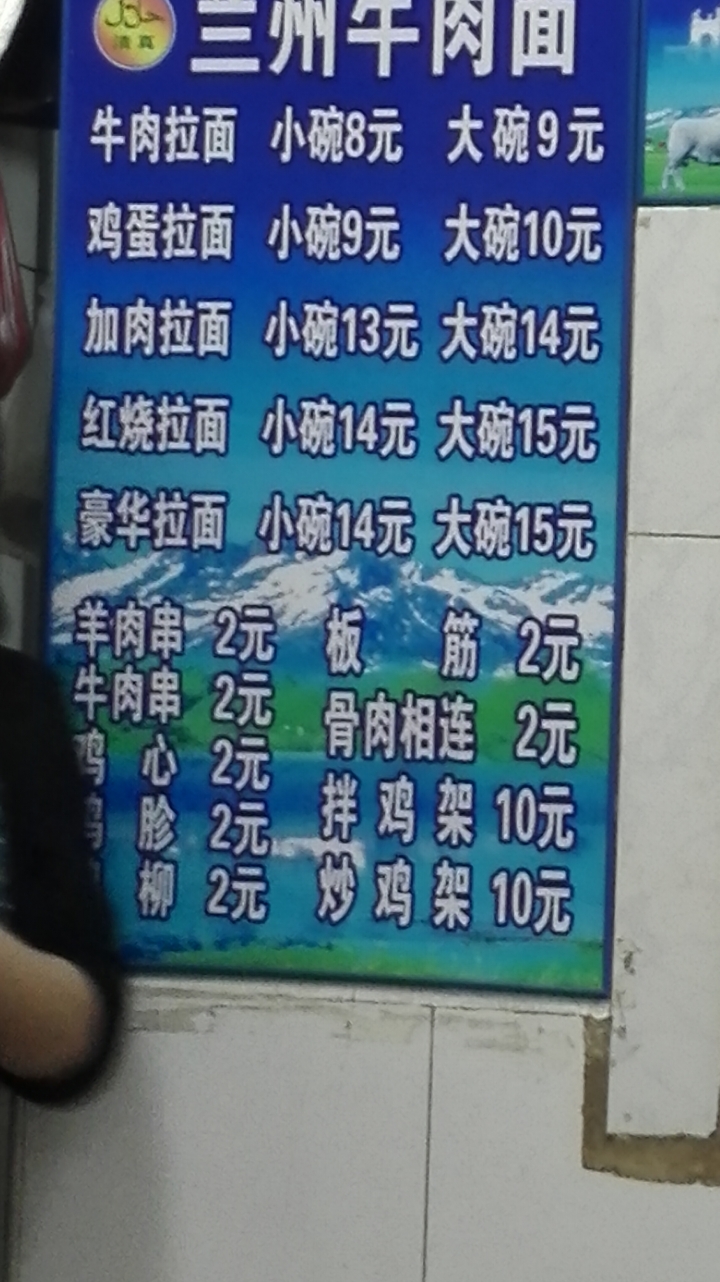 حلال
清真
兰州牛肉面
牛肉拉面 小碗8元 大碗9元
鸡蛋拉面 小碗9元 大碗10元
加肉拉面 小碗13元 大碗14元
红烧拉面 小碗14元 大碗15元
豪华拉面 小碗14元 大碗15元
羊肉串 2元 板筋 2元
牛肉串 2元 骨肉相连 2元
鸡心 2元 拌鸡架 10元
鸡胗 2元 炒鸡架 10元
柳 2元